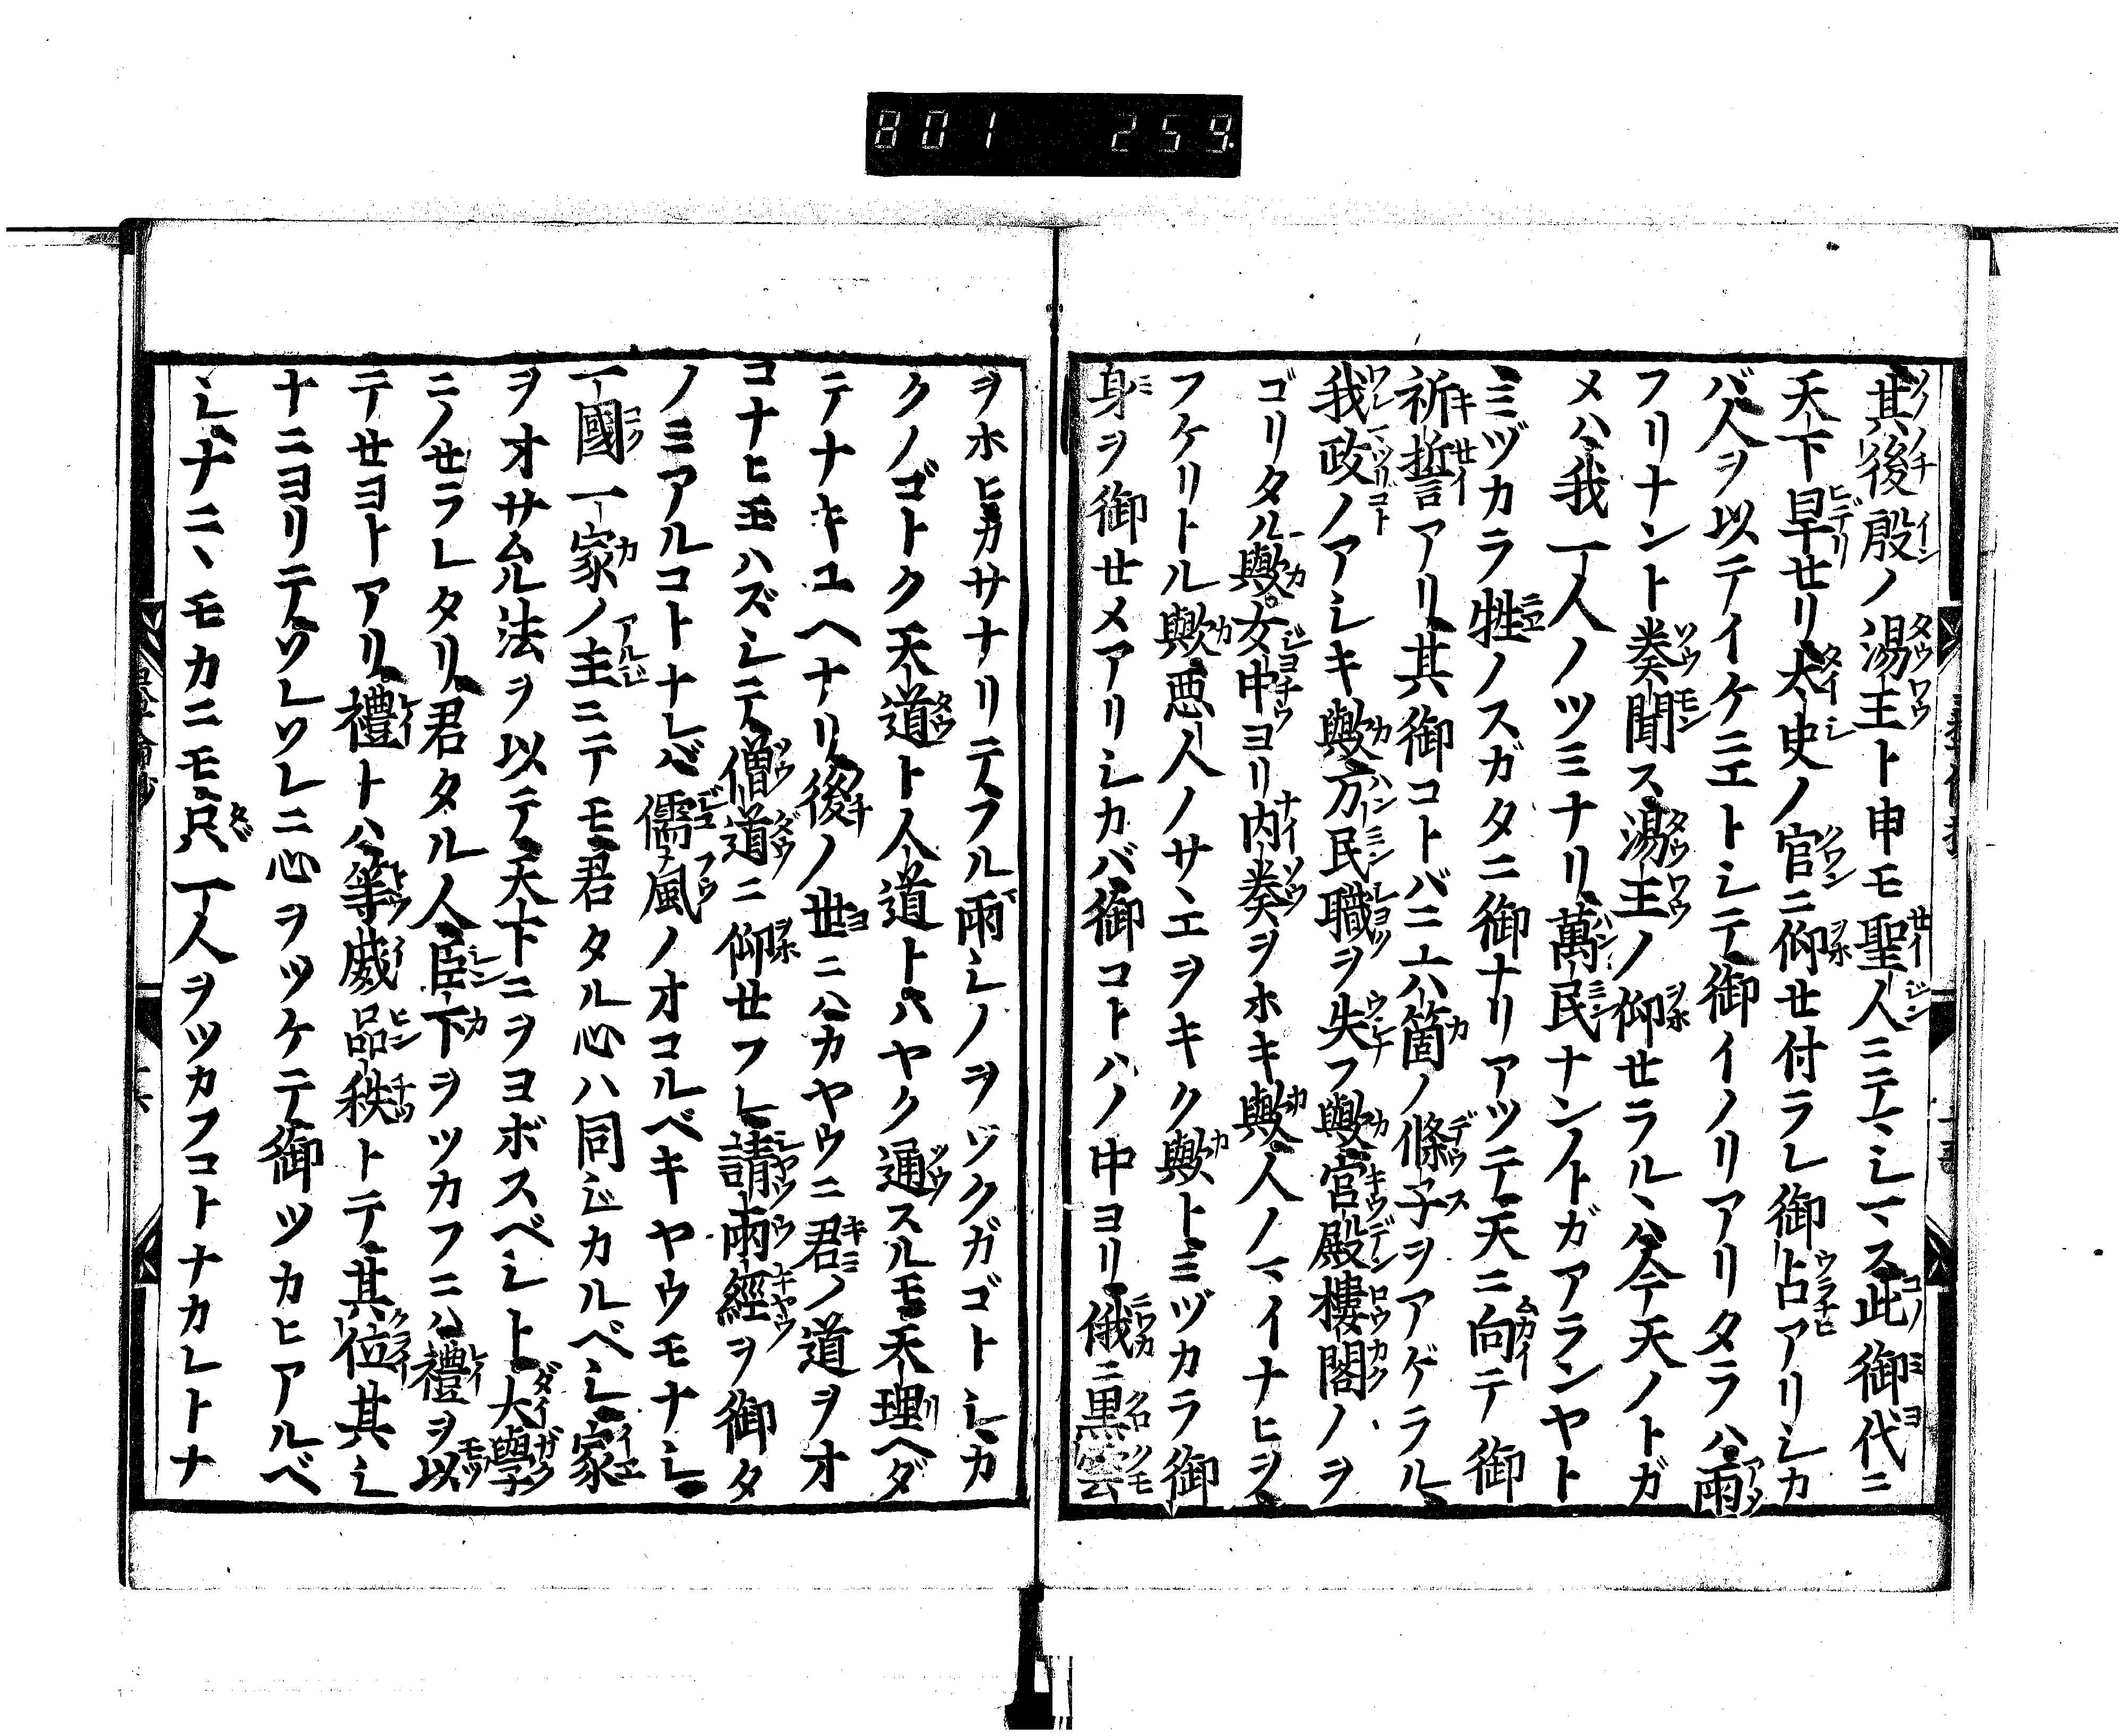 801 259
其後殷ノ湯王ト申モ聖人ニテマシマス此御代ニ
天下旱セリ太史ノ官ニ仰セ付ラレ御占アリシカ
バ人ヲ以テイケニエトシテ御イノリアリタラハ雨
フリナント奏聞ス湯王ノ仰セラルヽハ今天ノトガ
メハ我一人ノツミナリ萬民ナンノトガアランヤト
ミヅカラ牲ノスガタニ御ナリアツテ天ニ向テ御
祈誓アリ其御コトバニ六箇ノ條子ヲアゲラル
我政ノアシキ歟万民職ヲ失フ歟宮殿樓閣ノヲ
ゴリタル歟女中ヨリ内奏ヲホキ歟人ノマイナヒヲ
フケリトル歟悪人ノサヽエヲキク歟トミヅカラ御
身ヲ御セメアリシカバ御コトハノ中ヨリ俄ニ黒雲
ヲホヒカサナリテフル雨シノヲヅクガゴトシカ
クノゴトク天道ト人道トハヤク通スルモ天理ヘダ
テナキユヘナリ後ノ世ニハカヤウニ君ノ道ヲオ
コナヒ玉ハズシテ僧道ニ仰セフレ請雨經ヲ御タ
ノミアルコトナレバ儒風ノオコルベキヤウモナシ
一國一家ノ主ニテモ君タル心ハ同ジカルベシ家
ヲオサムル法ヲ以テ天下ニヲヨボスベシト大學
ニノセラレタリ君タル人臣下ヲツカフニハ禮ヲ以
テセヨトアリ禮トハ等威品秩トテ其位其シ
ナニヨリテソレソレニ心ヲツケテ御ツカヒアルベ
シナニヽモカニモ只一人ヲツカフコトナカレトナ